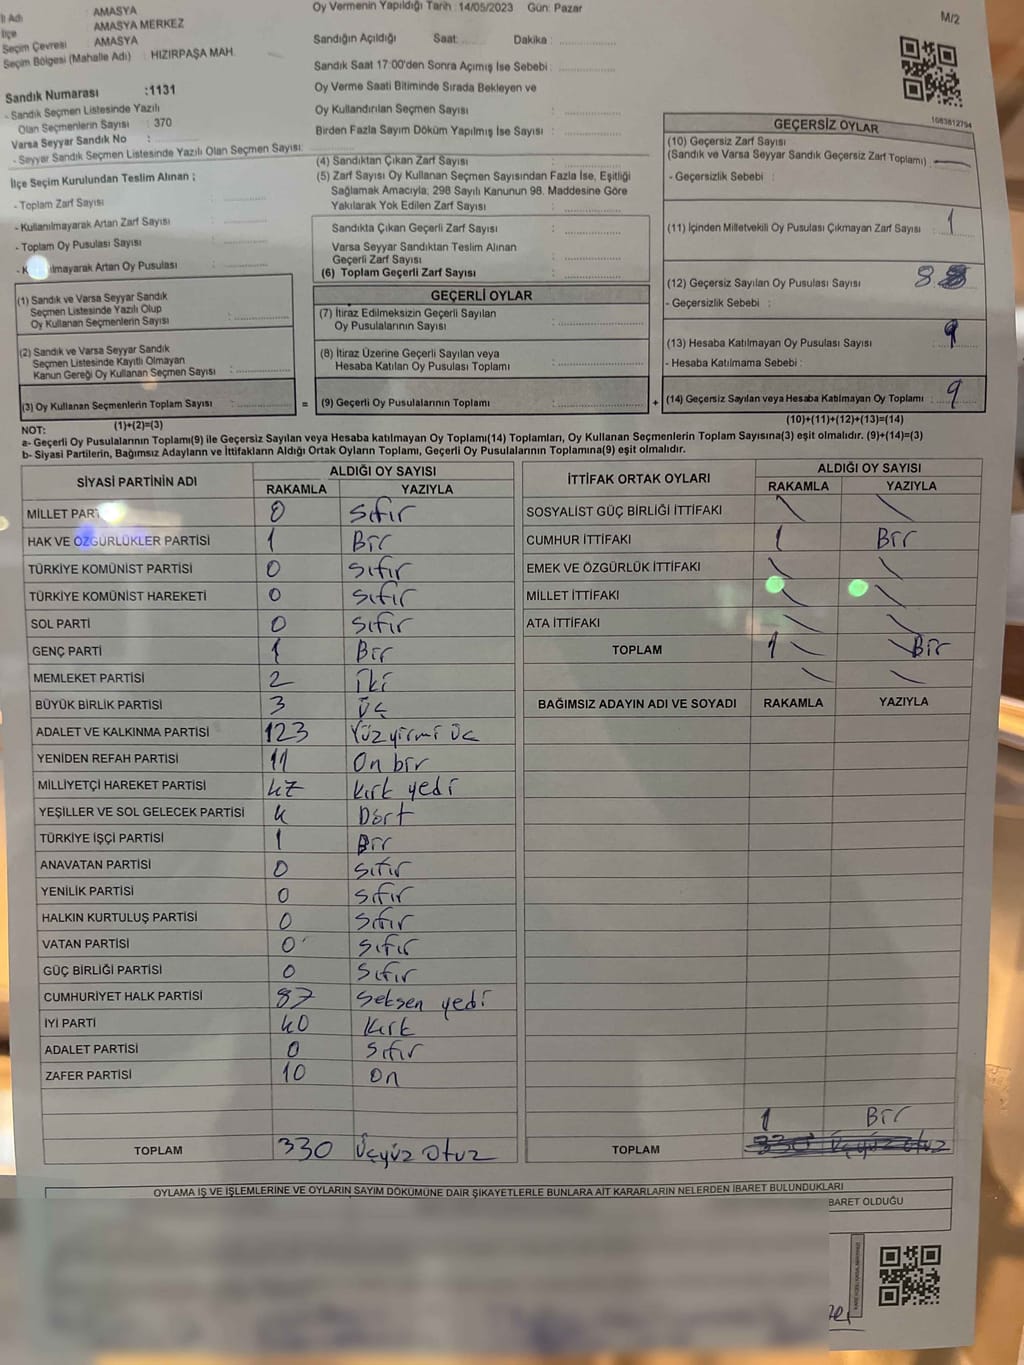 İl Adı : AMASYA
İlçe : AMASYA MERKEZ
Seçim Çevresi : AMASYA
Seçim Bölgesi (Mahalle Adı) : HIZIRPAŞA MAH.
Sandık Numarası :1131
- Sandık Seçmen Listesinde Yazılı
Olan Seçmenlerin Sayısı : 370
Varsa Seyyar Sandık No :
- Seyyar Sandık Seçmen Listesinde Yazılı Olan Seçmen Sayısı:
İlçe Seçim Kurulundan Teslim Alınan ;
- Toplam Zarf Sayısı :
- Kullanılmayarak Artan Zarf Sayısı :
- Toplam Oy Pusulası Sayısı :
ılmayarak Artan Oy Pusulası :
(1) Sandık ve Varsa Seyyar Sandık
Seçmen Listesinde Yazılı Olup
Oy Kullanan Seçmenlerin Sayısı :
(2) Sandık ve Varsa Seyyar Sandık
Seçmen Listesinde Kayıtlı Olmayan
Kanun Gereği Oy Kullanan Seçmen Sayısı :
(3) Oy Kullanan Seçmenlerin Toplam Sayısı : =
Oy Vermenin Yapıldığı Tarih :14/05/2023 Gün: Pazar
Sandığın Açıldığı Saat: Dakika :
Sandık Saat 17:00'den Sonra Açımış İse Sebebi :
Oy Verme Saati Bitiminde Sırada Bekleyen ve
Oy Kullandırılan Seçmen Sayısı :
Birden Fazla Sayım Döküm Yapılmış İse Sayısı :
(4) Sandıktan Çıkan Zarf Sayısı :
(5) Zarf Sayısı Oy Kullanan Seçmen Sayısından Fazla İse, Eşitliği
Sağlamak Amacıyla; 298 Sayılı Kanunun 98. Maddesine Göre
Yakılarak Yok Edilen Zarf Sayısı :
Sandıkta Çıkan Geçerli Zarf Sayısı :
Varsa Seyyar Sandıktan Teslim Alınan
Geçerli Zarf Sayısı :
(6) Toplam Geçerli Zarf Sayısı :
GEÇERLİ OYLAR
(7) İtiraz Edilmeksizin Geçerli Sayılan
Oy Pusulalarının Sayısı :
(8) İtiraz Üzerine Geçerli Sayılan veya
Hesaba Katılan Oy Pusulası Toplamı :
(9) Geçerli Oy Pusulalarının Toplamı : +
M/2
1083812794
GEÇERSİZ OYLAR
(10) Geçersiz Zarf Sayısı
(Sandık ve Varsa Seyyar Sandık Geçersiz Zarf Toplamı) :
- Geçersizlik Sebebi :
(11) İçinden Milletvekili Oy Pusulası Çıkmayan Zarf Sayısı : 1
(12) Geçersiz Sayılan Oy Pusulası Sayısı : 8
- Geçersizlik Sebebi :
(13) Hesaba Katılmayan Oy Pusulası Sayısı : 9
- Hesaba Katılmama Sebebi :
(14) Geçersiz Sayılan veya Hesaba Katılmayan Oy Toplamı : 9
NOT: (1)+(2)=(3) (10)+(11)+(12)+(13)=(14)
a- Geçerli Oy Pusulalarının Toplamı(9) ile Geçersiz Sayılan veya Hesaba katılmayan Oy Toplamı(14) Toplamları, Oy Kullanan Seçmenlerin Toplam Sayısına(3) eşit olmalıdır. (9)+(14)=(3)
b- Siyasi Partilerin, Bağımsız Adayların ve İttifakların Aldığı Ortak Oyların Toplamı, Geçerli Oy Pusulalarının Toplamına(9) eşit olmalıdır.
SİYASİ PARTİNİN ADI ALDIĞI OY SAYISI
RAKAMLA YAZIYLA
MİLLET PART 0 Sıfır
HAK VE ÖZGÜRLÜKLER PARTİSİ 1 Bir
TÜRKİYE KOMÜNİST PARTİSİ 0 Sıfır
TÜRKİYE KOMÜNİST HAREKETİ 0 Sıfır
SOL PARTİ 0 Sıfır
GENÇ PARTİ 1 Bir
MEMLEKET PARTİSİ 2 İki
BÜYÜK BİRLİK PARTİSİ 3 Üç
ADALET VE KALKINMA PARTİSİ 123 Yüzyirmi üç
YENİDEN REFAH PARTİSİ 11 On bir
MİLLİYETÇİ HAREKET PARTİSİ 47 Kırk yedi
YEŞİLLER VE SOL GELECEK PARTİSİ 4 Dört
TÜRKİYE İŞÇİ PARTİSİ 1 Bir
ANAVATAN PARTİSİ 0 Sıfır
YENİLİK PARTİSİ 0 Sıfır
HALKIN KURTULUŞ PARTİSİ 0 Sıfır
VATAN PARTİSİ 0 Sıfır
GÜÇ BİRLİĞİ PARTİSİ 0 Sıfır
CUMHURİYET HALK PARTİSİ 87 Seksen yedi
İYİ PARTİ 40 Kırk
ADALET PARTİSİ 0 Sıfır
ZAFER PARTİSİ 10 On
TOPLAM 330 Üçyüz otuz
İTTİFAK ORTAK OYLARI ALDIĞI OY SAYISI
RAKAMLA YAZIYLA
SOSYALİST GÜÇ BİRLİĞİ İTTİFAKI
CUMHUR İTTİFAKI 1 Bir
EMEK VE ÖZGÜRLÜK İTTİFAKI
MİLLET İTTİFAKI
ATA İTTİFAKI
TOPLAM 1 Bir
BAĞIMSIZ ADAYIN ADI VE SOYADI RAKAMLA YAZIYLA
1 Bir
TOPLAM 330 Üçyüz otuz
OYLAMA İŞ VE İŞLEMLERİNE VE OYLARIN SAYIM DÖKÜMÜNE DAİR ŞİKAYETLERLE BUNLARA AİT KARARLARIN NELERDEN İBARET BULUNDUKLARI
BARET OLDUĞU